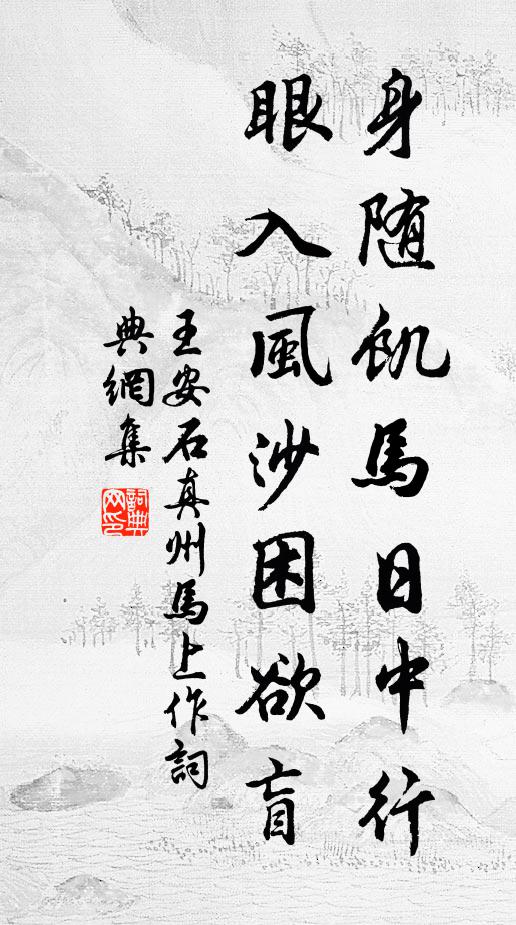 身随飢馬日中行
眼入風沙困欲盲
王安石真州馬上作詞
典網集
詞典网印